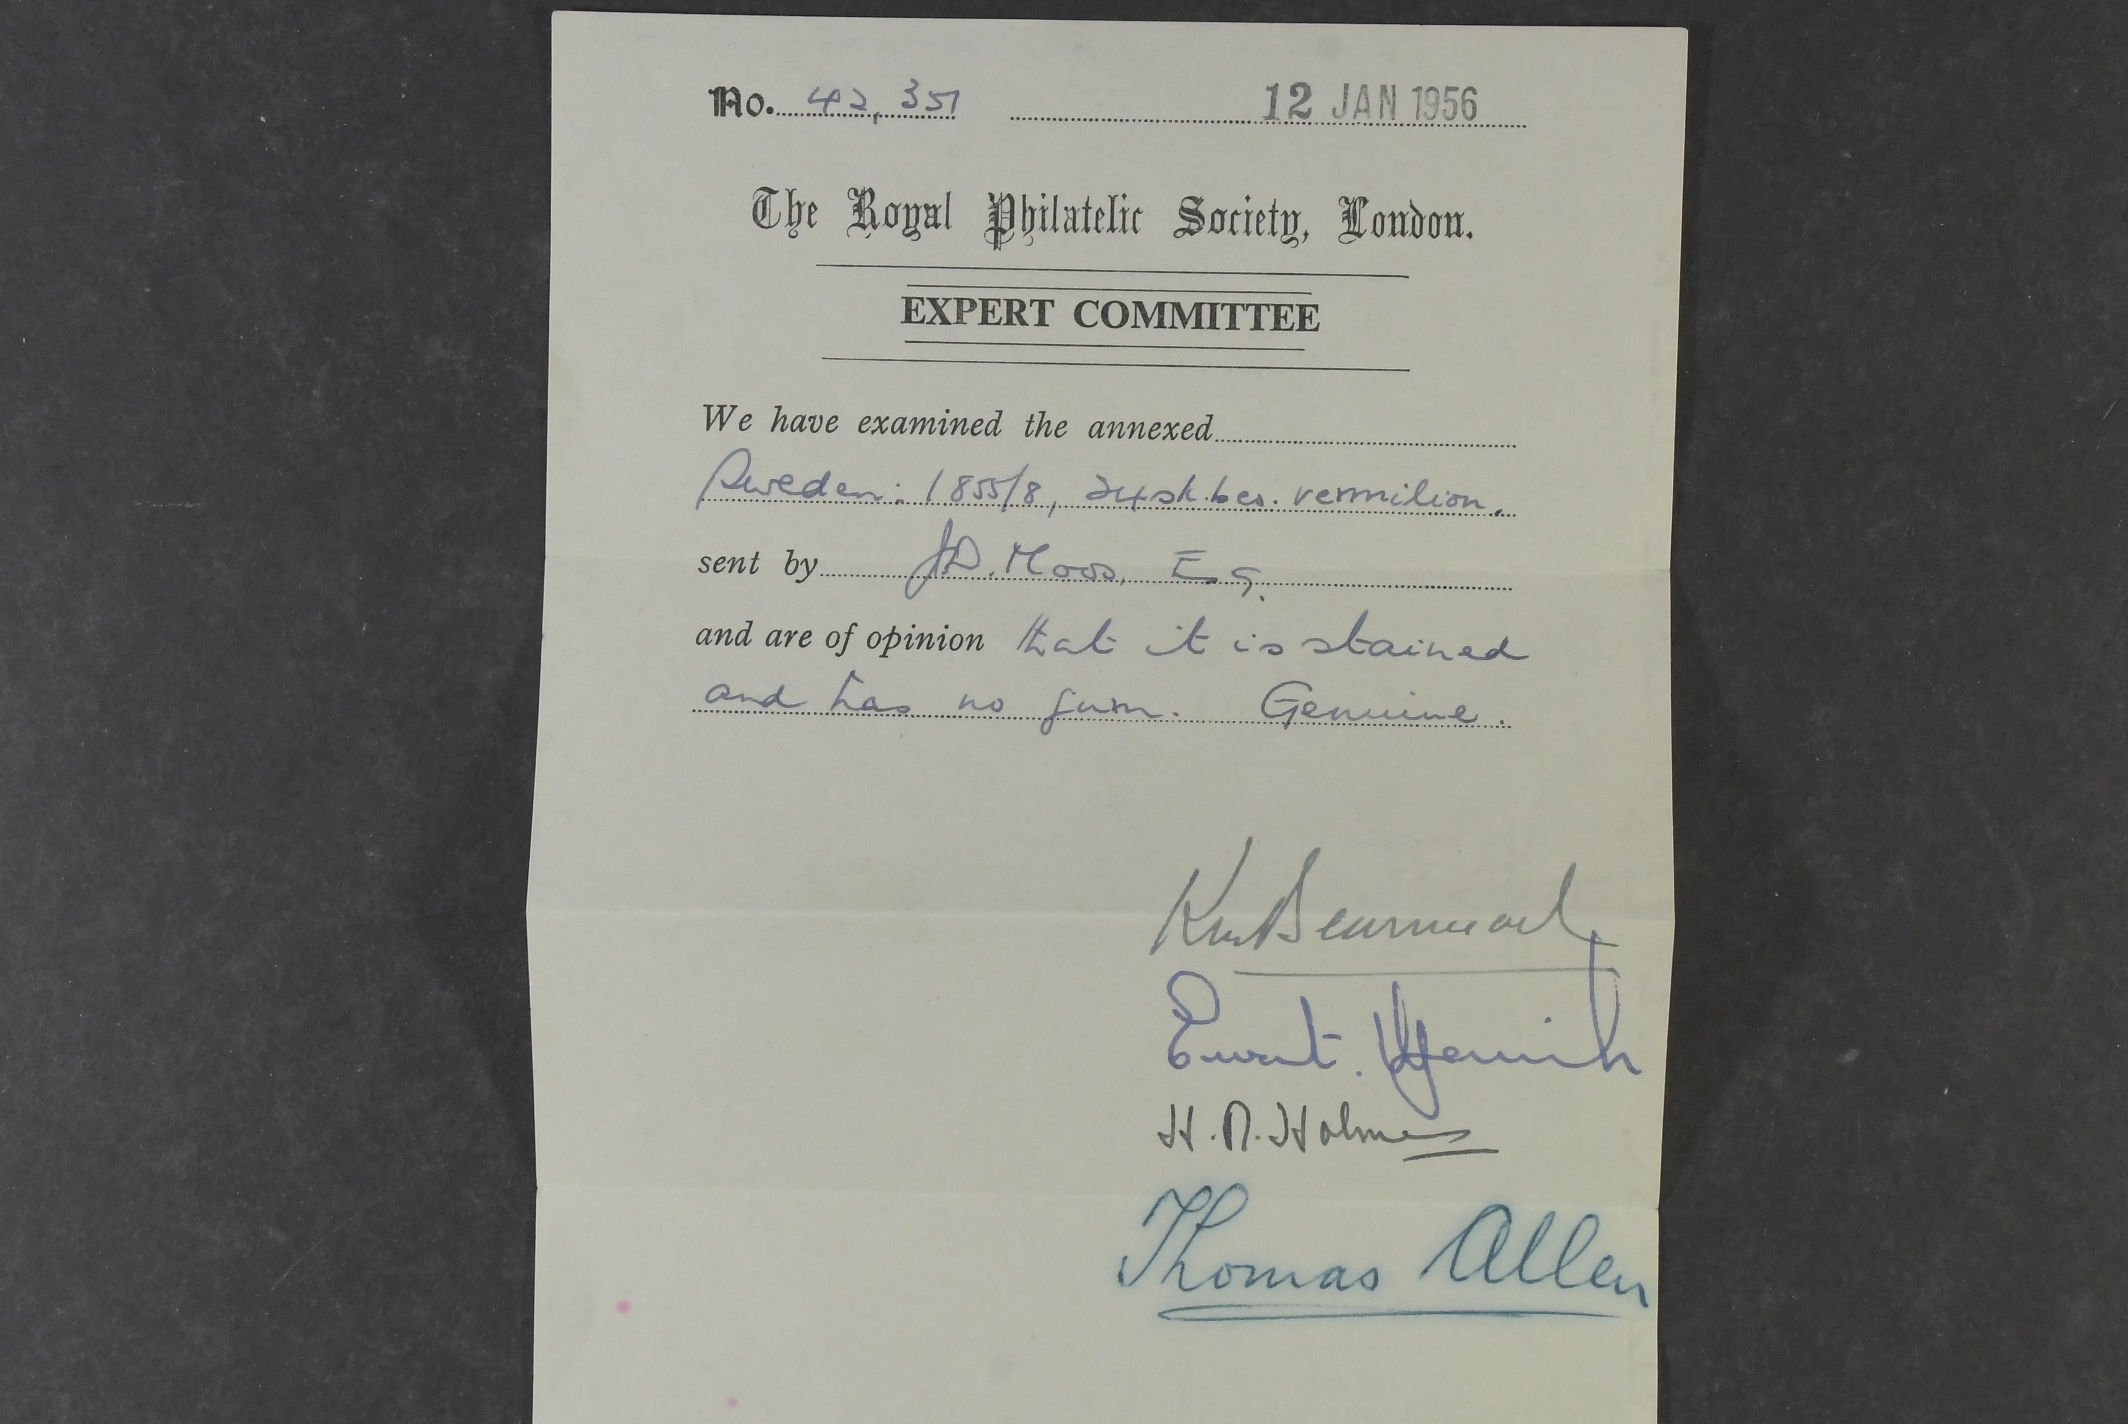 No. 42,351 12 JAN 1956
The Royal Philatelic Society, London.
EXPERT COMMITTEE
We have examined the annexed
Sweden: 1855/8, 24 sk. bco. vermilion.
sent by J.D. Moos, Esq.
and are of opinion that it is stained
and has no gum. Genuine.
H. R. Holmes
Thomas Allen